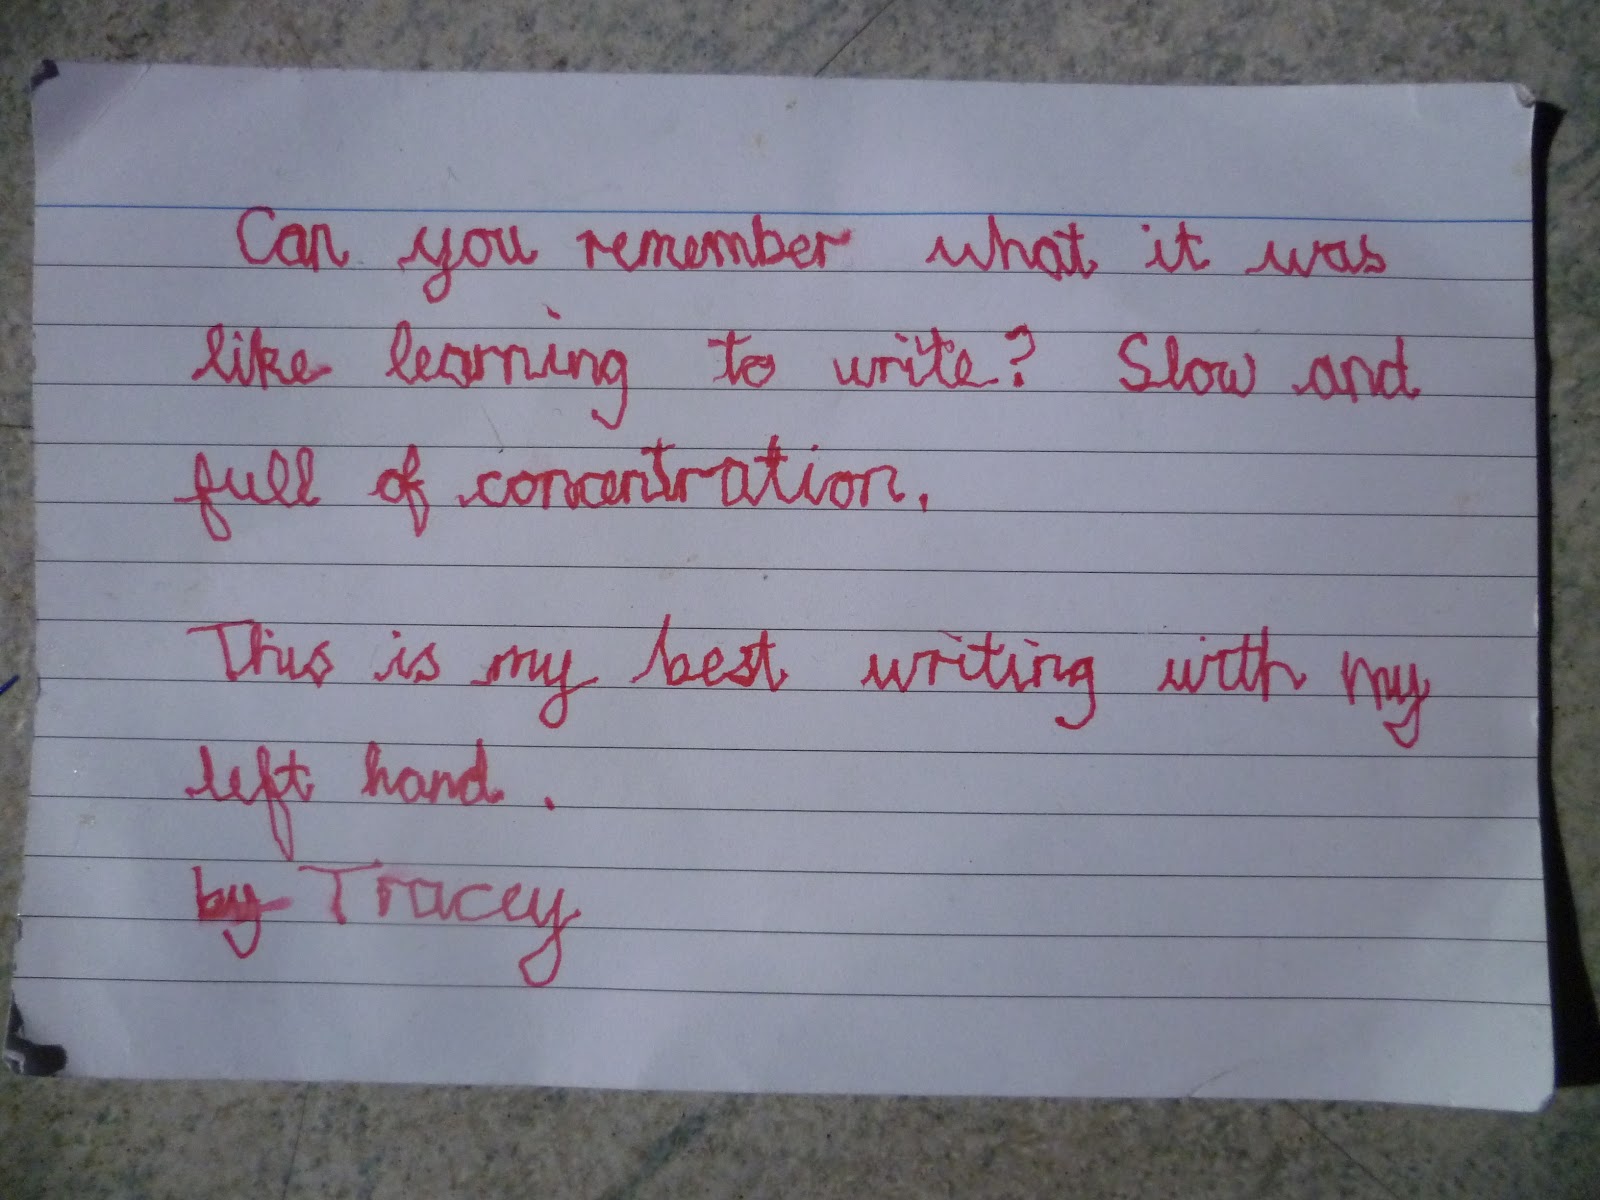 Can you remember what it was
like learning to write? Slow and
full of concentration.
This is my best writing with my
left hand.
by Tracey